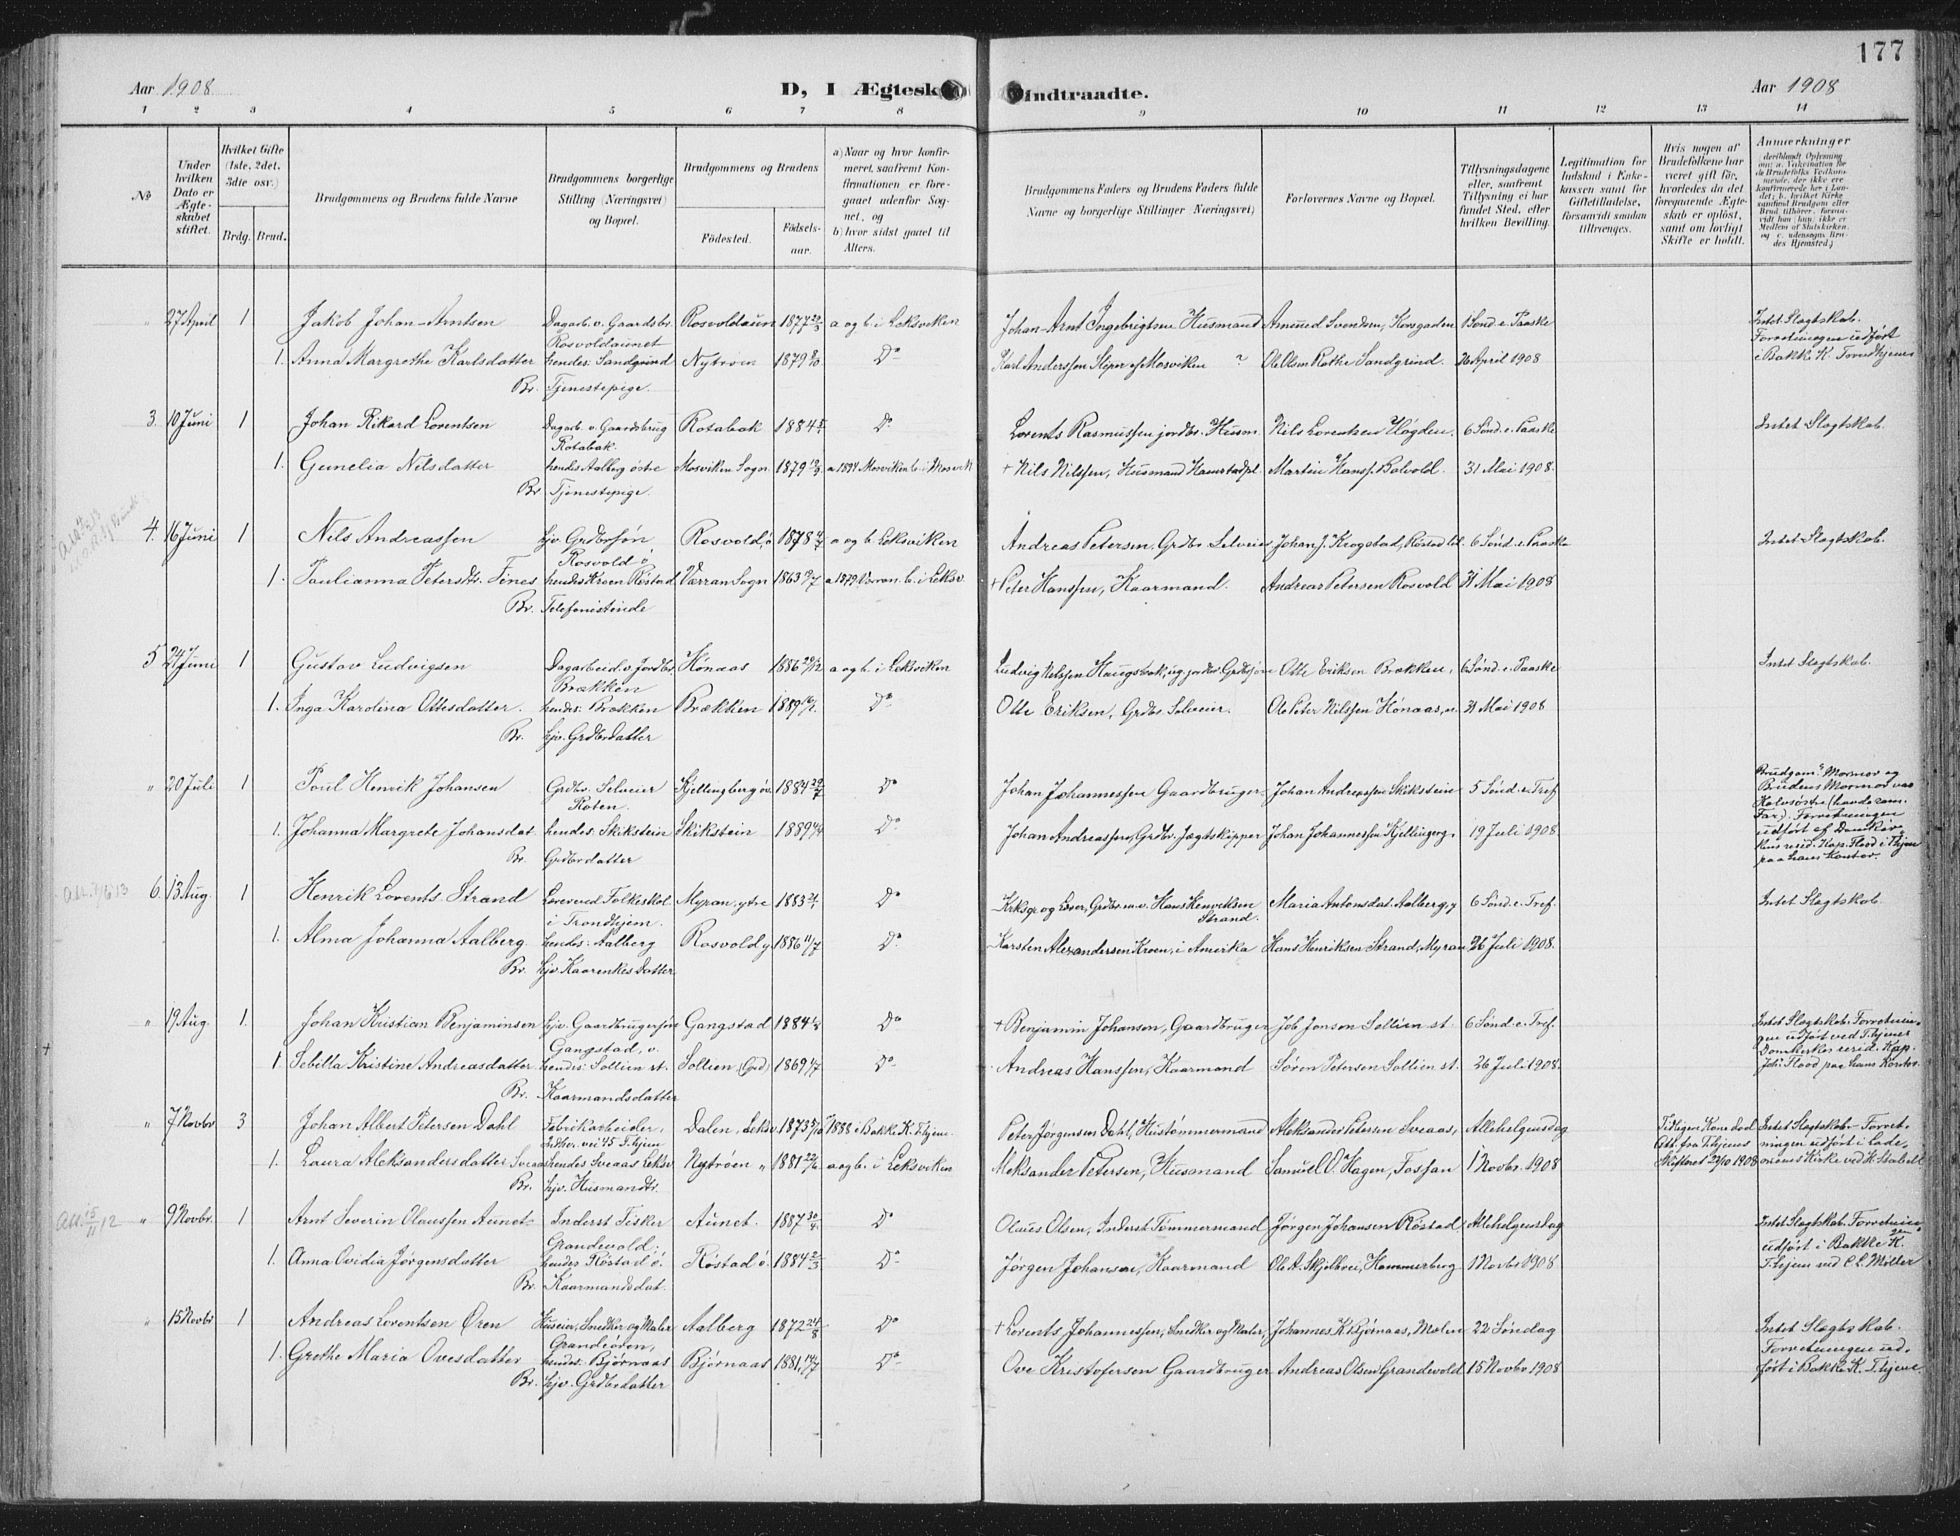 177
Aar 1908
D, I Ægtesk
indtraadte.
Aar 1908
1 2 3 4 5 6 7 8 9 10 11 12 13 14
No
Under hvilken Dato er Ægteskabet stiftet.
Hvilket Gifte (1ste, 2det, 3die osv.)
Brdg. Brud.
Brudgommens og Brudens fulde Navne
Brudgommens borgerlige Stilling (Næringsvei) og Bopæl.
Brudgommens og Brudens
Fødested.
Fødselsaar.
a) Naar og hvor konfirmeret, saafremt Konfirmationen er foregaaet udenfor Sognet, og
b) hvor sidst gaaet til Alters.
Brudgommens Faders og Brudens Faders fulde Navne og borgerlige Stillinger (Næringsvei)
Forlovernes Navne og Bopæl.
Tillysningsdagene eller, saafremt Tillysning ei har fundet Sted, efter hvilken Bevilling.
Legitimation for Indskud i Enkekassen samt for Giftetilladelse, forsaavidt saadan tiltrænges.
Hvis nogen af Brudefolkene har været gift før, hvorledes da det foregaaende Ægteskab er opløst, samt om lovligt Skifte er holdt.
Anmærkninger
" 27 April 1 Jakob Johan Arntsen Dagarb. v. Gaardsbr. Rosvoldaun 1877 a og b. i Leksviken Johan Arnt Ingebrigtsen Husmand Amund Svendsen, Korsgaden 1 Sønd. e. Paaske Intet Slagtskab.
Rosvoldaunet Forretningen udført
1. Anna Margrethe Karlsdatter hendes: Sandgrind Nytrøen 1879 Do Karl Anderssen Sleper af Mosviken ? Ole Olsen Rothe Sandgrind. 26 April 1908 i Bakke K. Trondhjem
Br. Tjenestepige.
3. 10 Juni 1 Johan Rikard Lorentsen Dagarb. v. Gaardsbrug Rotabak 1884 Do Lorents Rasmussen jordbr. Husm. Nils Lorentsen Høgden. 6 Sønd. e. Paaske Intet Slagtskab.
Rotabak.
1. Gunelia Nilsdatter hendes Aalberg østre Mosviken Sogn 1879 a 1894 Mosviken b. i Mosvik + Nils Nilssen, Husmand Martin Hanss. 31 Mai 1908.
Br Tjenestepige.
4. 16 Juni 1 Nils Andreassen hjv. Grdbrsøn Rosvold, i 1878 a og b. Leksviken Andreas Petersen, Grdbr. Selveier Johan J. Krogstad, Røstad 6 Sønd. e. Paaske Intet Slagtskab.
Rosvold i
1. Paulianna Petersdt. Fines hendes Kroen Røstad Værran Sogn 1863 a 1879 Værran b. i Leksv. + Peter Hanssen, Kaarmand. Andreas Petersen Rosvold 31 Mai 1908
Br. Telefonistinde
5 24 Juni 1 Gustav Ludvigsen Dagarbeid. v. Jordbr. Hønaas 1886 a og b. i Leksviken Ludvig Nilssen Otte Eriksen Brækken, 6 Sønd. e. Paaske Intet Slagtskab.
Brækken
1. Inga Karolina Ottesdatter. hendes: Brækken Brækken 1889 Do Otte Eriksen, Grdbr. Selveier. Ole Peter Nilssen Hønaas, 31 Mai 1908
Br. hjv. Grdbrdatter
" 20 Juli 1 Poul Henrik Johansen Grdbr. Selveier Kjellingberg øv. 1884 Do Johan Johannessen Gaardbruger Johan Andreassen Skikstein 5 Sønd. e. Tref. Brudgom. Mormor og Brudens Mormor var Halvsøstre (havde sam. Far). Forretningen
Roten.
1. Johanna Margrete Johansdat. hendes: Skikstein Skikstein 1889 Do Johan Andreassen, Grdbr. Jægtskipper Johan Johannessen 19 Juli 1908 udført af Domkirkens resid. Kap. Flood i Thjem paa hans Kontor.
Br. Grdbrdatter
6 13 Aug. 1 Henrik Lorents Strand Lærer ved Folkeskol. Myran, ytre 1883 Do Hans Henriksen Strand. Maria Antonsdat. Aalberg, y 6 Sønd. e. Tref. Intet Slagtskab.
i Trondhjem.
1. Alma Johanna Aalberg. hendes: Aalberg Rosvold y 1886 11/7 Do Karsten Alexandersen Kroen, i Amerika Hans Henriksen Strand, Myran 26 Juli 1908.
Br. hjv. Kaarenkes Datter
" 19 Aug. 1. Johan Kristian Benjaminsen hjv. Gaardbrugersøn Gangstad 1884 Do + Benjamin Johansen, Gaardbruger Job Jonsen Sollien st. 6 Sønd. e. Tref. Intet Slagtskab. Forretningen udført ved Thjems
Gangstad, v.
1 Sebilla Kristine Andreasdatter hendes: Sollien st. Sollien (Grd) 1869 Do Andreas Hanssen, Kaarmand Søren Petersen Sollien st. 26 Juli 1908. Domkirkes resid. Kap. Joh. Flood paa hans Kontor.
Br. Kaarmandsdatter
" 7 Novbr 3 Johan Albert Petersen Dahl Fabrikarbeider, Dalen, Leksv. 1873 1888 i Bakke K. Thjem. Peter Jørgensen Dahl, Hustømmermand Aleksander Petersen Sveaas, Allehelgensdag Intet Slagtskab. Forretningen udført i Lade
Indher. vei 45 Thjem
1. Laura Aleksandersdatter Sveaas hendes Sveaas Leksv. Nytrøen " 1881 a og b. i Leksviken Aleksander Petersen, Husmand Samuel O. Hagen, Fossan 1 Novbr. 1908 Skifteret 22/10 1908
Br. hjv. Husmandsdt.
" 9 Novbr. 1 Arnt Severin Olaussen Aunet Inderst Fisker Aunet. 1887 30/4 Do Olaus Olsen, Inderst Tømmermand Jørgen Johansen Røstad, Allehelgensdag Intet Slagtskab. Forretningen
Grandevold;
1. Anna Ovidia Jørgensdatter hendes Røstad ö. Røstad ö. 1884 2/3 Do Jørgen Johansen, Kaarmand Ole A. Skjelvei, Hammerberg 1 Novbr 1908 udført i Bakke K. Thjem ved C. L. Müller
Br. Kaarmandsdat.
" 15 Novbr 1 Andreas Lorentsen Øren Huseier, Snedker og Maler Aalberg 1872 24/8 Do + Lorents Johannessen, Snedker og Maler, Johannes K. Bjørnaas, Molen 22 Søndag Intet Slagtskab.
Grandeøren,
1. Grethe Maria Ovesdatter hendes: Bjørnaas Bjørnaas 1881 14/7 Do Ove Kristofersen Gaardbruger Andreas Olsen Grandevold 15 Novbr 1908 Forretningen udført i Bakke K. Thjem.
Br. hjv. Grdbrdatter